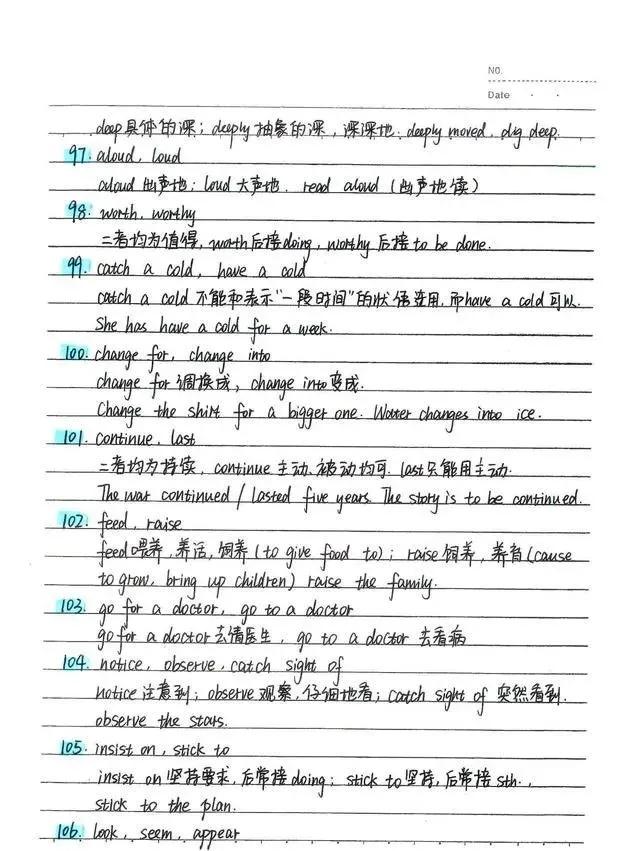 NO.
Date . .
deep具体的深；deeply抽象的深，深深地. deeply moved, dig deep.
97. aloud, loud
aloud出声地；loud大声地. read aloud (出声地读)
98. worth, worthy
二者均为值得, worth后接doing, worthy后接to be done.
99. catch a cold, have a cold
catch a cold不能和表示"一段时间"的状语连用, 而have a cold可以.
She has have a cold for a week.
100. change for, change into
change for调换成, change into变成.
Change the shirt for a bigger one. Water changes into ice.
101. continue, last
二者均为持续, continue主动、被动均可. last只能用主动.
The war continued / lasted five years. The story is to be continued.
102. feed, raise
feed喂养, 养活, 饲养 (to give food to)；raise饲养, 养育 (cause
to grow, bring up children) raise the family.
103. go for a doctor, go to a doctor
go for a doctor去请医生, go to a doctor去看病
104. notice, observe, catch sight of
notice注意到；observe观察, 仔细地看；catch sight of突然看到.
observe the stars.
105. insist on, stick to
insist on坚持要求, 后常接doing；stick to坚持, 后常接sth..
stick to the plan.
106. look, seem, appear